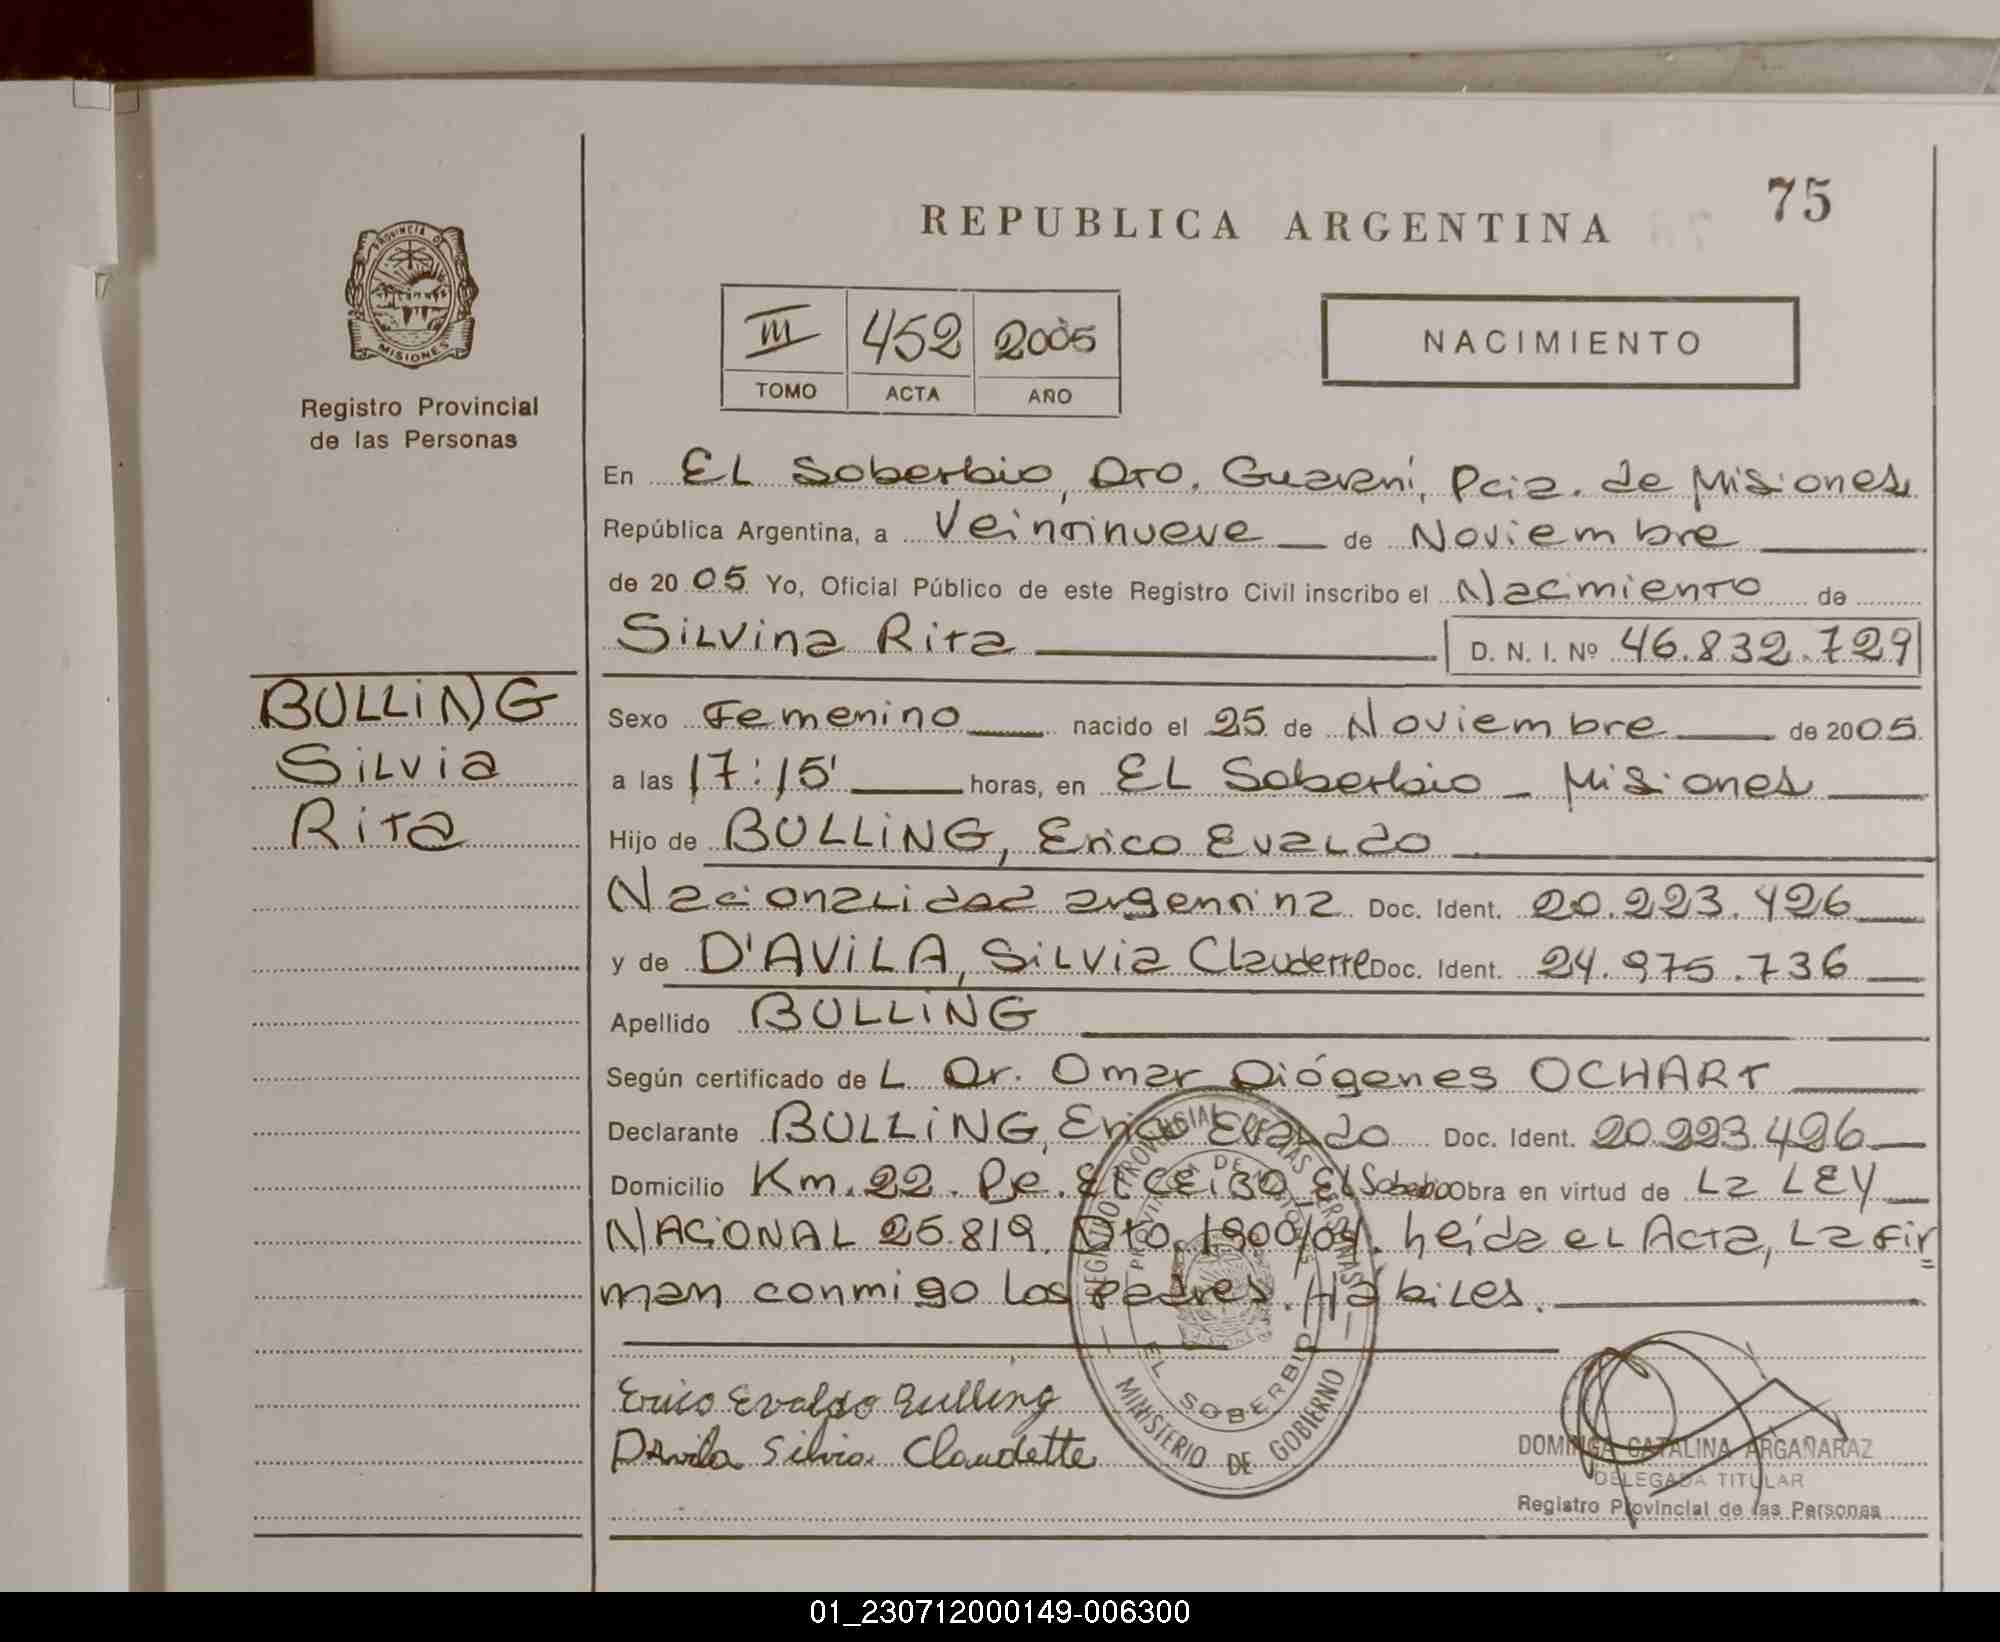 75
REPUBLICA ARGENTINA
PROVINCIA DE
MISIONES
Registro Provincial
de las Personas
III 452 2005
TOMO ACTA AÑO
NACIMIENTO
En EL Soberbio, Dto. Guaraní, Pcia. de Misiones
República Argentina, a Veintinueve de Noviembre
de 2005 Yo, Oficial Público de este Registro Civil inscribo el Nacimiento de
Silvina Rita D. N. I. Nº 46.832.729
BULLING
Silvia
Rita
Sexo Femenino nacido el 25 de Noviembre de 2005
a las 17:15' horas, en EL Soberbio - Misiones
Hijo de BULLING, Erico Evaldo
Nacionalidad argentina Doc. Ident. 20.223.426
y de D'AVILA, Silvia Claudette Doc. Ident. 24.975.736
Apellido BULLING
Según certificado de L Dr. Omar Diógenes OCHART
Declarante BULLING, Erico Evaldo Doc. Ident. 20.223.426
Domicilio Km. 22. Pe. El CEiBO, El Soberbio Obra en virtud de La LEY
NACIONAL 25.819. Dto. 1900/04. Leída el Acta, La fir
man conmigo los padres. Hábiles.
REGISTRO PROVINCIAL DE LAS PERSONAS
PROVINCIA DE MISIONES
EL SOBERBIO
MINISTERIO DE GOBIERNO
Erico Evaldo Bulling
Davila Silvia Claudette
DOMINGA CATALINA ARGAÑARAZ
DELEGADA TITULAR
Registro Provincial de las Personas
01_230712000149-006300